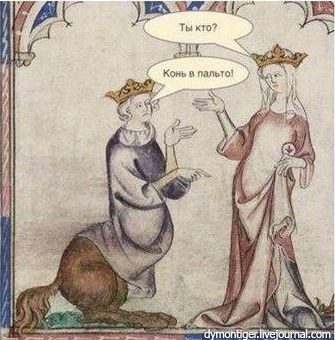 Ты кто?
Конь в пальто!
dymontiger.livejournal.com